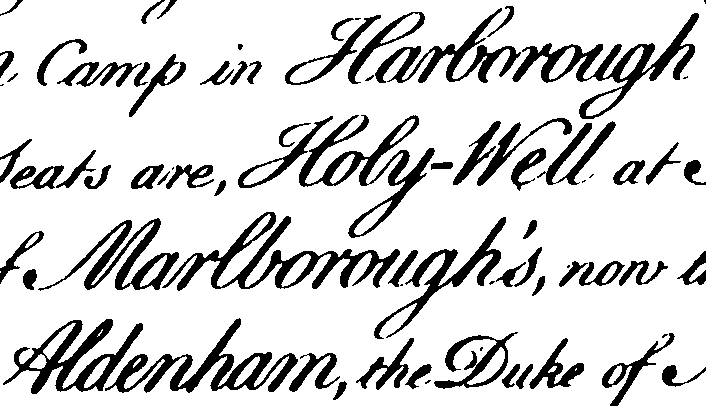 Camp in Harborough
Seats are, Holy-Well at
of Marlborough's, now
Aldenham, the Duke of